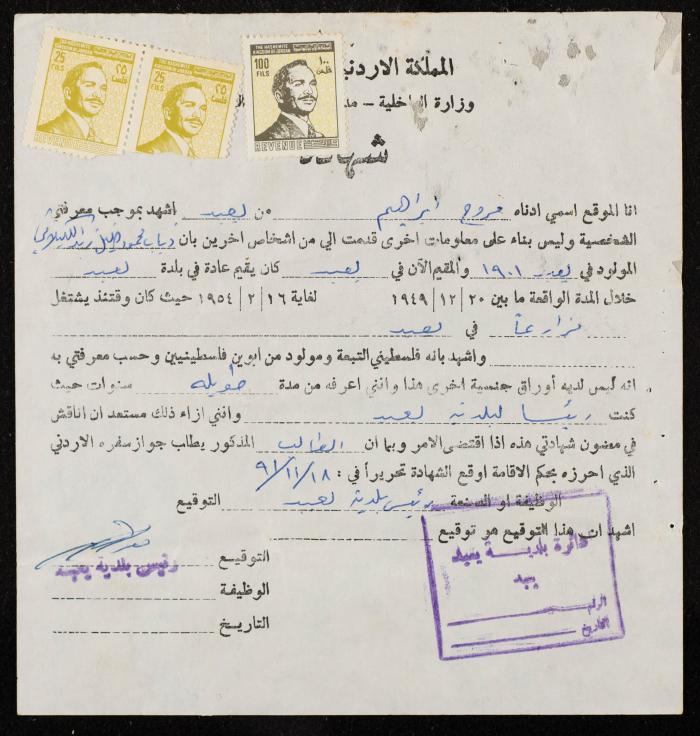 THE HASHEMITE KINGDOM OF JORDAN
25 FILS
٢٥ فلس
REVENUE
THE HASHEMITE KINGDOM OF JORDAN
25 FILS
٢٥ فلس
REVENUE
THE HASHEMITE KINGDOM OF JORDAN
100 FILS
١٠٠ فلس
REVENUE
المملكة الاردنية
وزارة الداخلية -
شهادة
انا الموقع اسمي ادناه مروح ابراهيم من يعبد اشهد بموجب معرفتي
الشخصية وليس بناء على معلومات اخرى قدمت الي من اشخاص اخرين بان ذياب محمود
المولود في يعبد ١٩٠١ والمقيم الآن في يعبد كان يقيم عادة في بلدة يعبد
خلال المدة الواقعة ما بين ٢٠ | ١٢ | ١٩٤٩ لغاية ١٦ | ٢ | ١٩٥٤ حيث كان وقتئذ يشتغل
مزارعاً في يعبد
واشهد بانه فلسطيني التبعة ومولود من ابوين فلسطينيين وحسب معرفتي به
انه ليس لديه أوراق جنسية اخرى هذا وانني اعرفه من مدة طويله سنوات حيث
كنت رئيسا لبلدية يعبد وانني ازاء ذلك مستعد ان اناقش
في مضمون شهادتي هذه اذا اقتضى الامر وبما ان الطالب المذكور يطلب جواز سفره الاردني
الذي احرزه بحكم الاقامة اوقع الشهادة تحريراً في : ٩١/١١/١٨
الوظيفة او الصنعة رئيس بلدية يعبد التوقيع
اشهد ان هذا التوقيع هو توقيع
التوقيع
رئيس بلدية يعبد
الوظيفة
التاريخ
دائرة بلدية يعبد
يعبد
الرقم
التاريخ